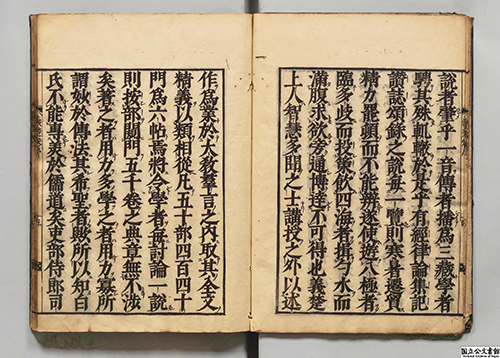 說者肇乎一音傳者播為三藏學者
興其殊軌轍於是乎有經律論集記
讚誌頌錄之說每一覽則寒者遷質
精力能頓而不能辨遂使遊八極者
臨多歧而投策飲四海者挹勺水而
滿腹求欲旁通博達不可得也義楚
上人智慧多聞之士講授之外以述
作為義於大教羣言之內取其全文
精義以類相從凡五十部四百四十
門為六帖焉將令學者每討論一說
則按部開門五十卷之典章無不涉
矣者之者用力多學之者用力寡所
謂放於傳法其希聖者歟所以知白
氏不能專美於儒道矣吏部侍郎司
国立公文書館